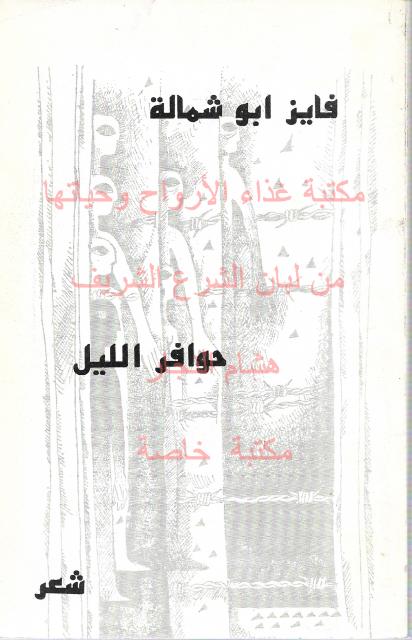 فايز ابو شمالة
مكتبة غذاء الأرواح وحياتها
من لبان الشرع الشريف
حوافر الليل
هشام
مكتبة خاصة
شعر